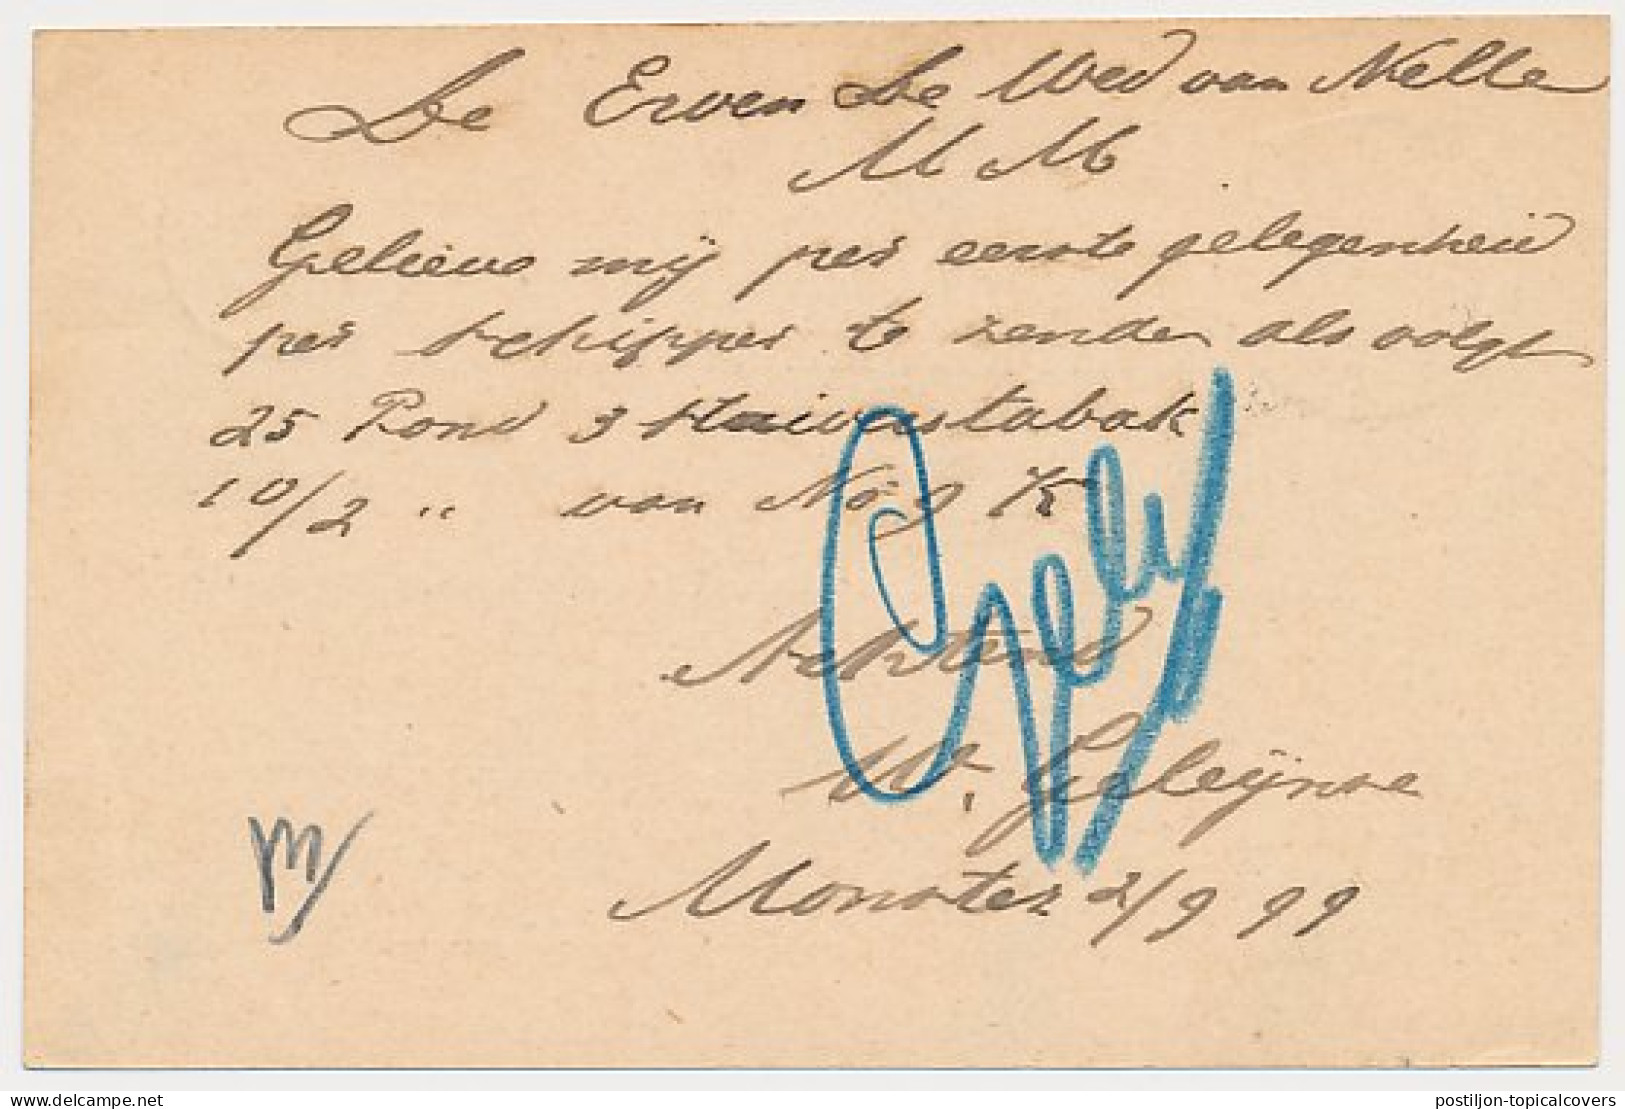 De Erven De Wed van Nelle
M M
Gelieve mij per eerste gelegenheid
per schipper te zenden als volgt
25 Pond 3 Stuiverstabak
10/2 " van No 9 K
Achtend
W. Geleijnse
Monster 2/9 99
delcampe.net
postiljon-topicalcovers